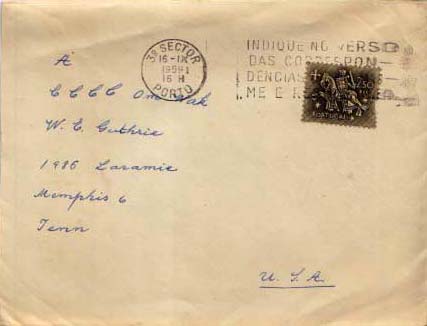 3º SECTOR
16-IX
1959
16 H
PORTO
INDIQUE NO VERSO
DAS CORRESPON
DENCIAS
ME E
2$50
PORTUGAL
À
CCCC Om
W. E. Guthrie
1986 Laramie
Memphis 6
Tenn
U. S. A.